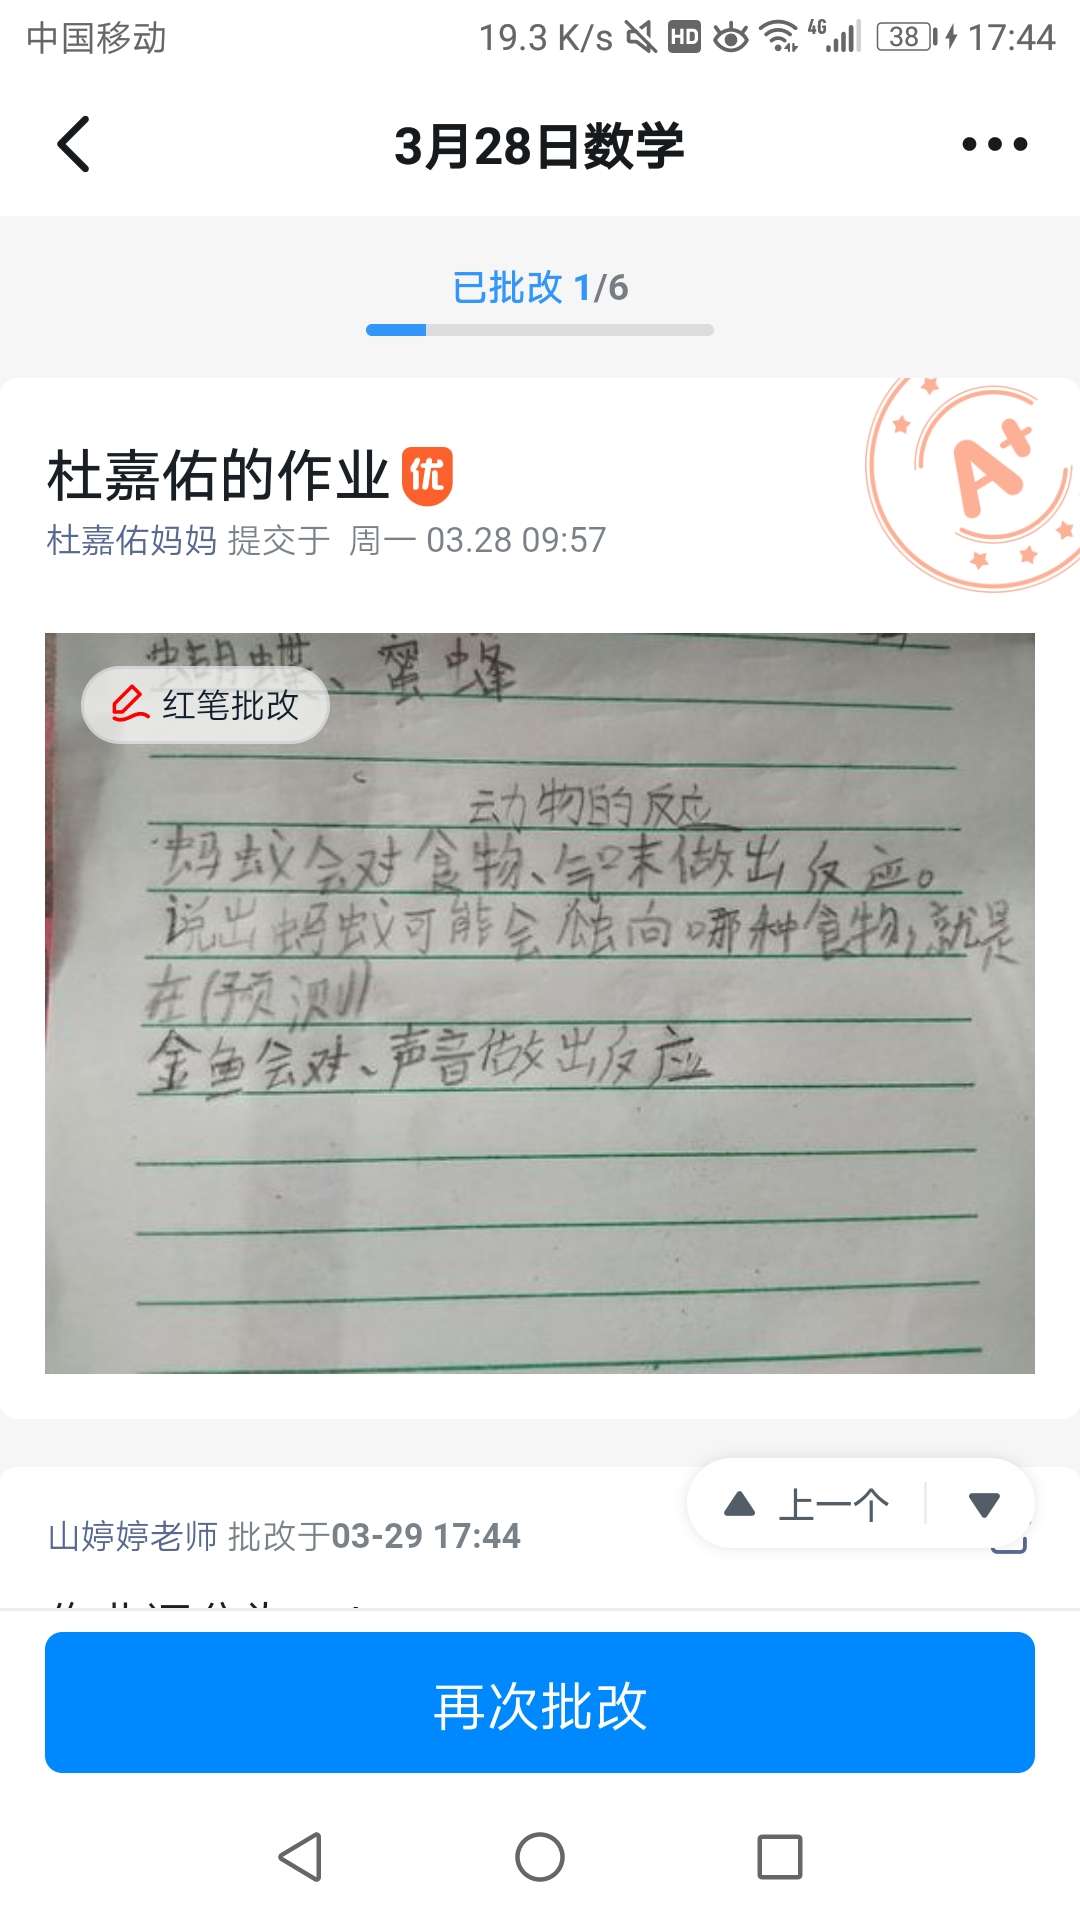 中国移动 19.3 K/s HD 4G 38 17:44
3月28日数学
已批改 1/6
A+
杜嘉佑的作业 优
杜嘉佑妈妈 提交于 周一 03.28 09:57
蝴蝶、蜜蜂
红笔批改
动物的反应
蚂蚁会对食物、气味做出反应。
说出蚂蚁可能会独向哪种食物,就是
在(预测)
金鱼会对、声音做出反应
上一个
山婷婷老师 批改于03-29 17:44
再次批改